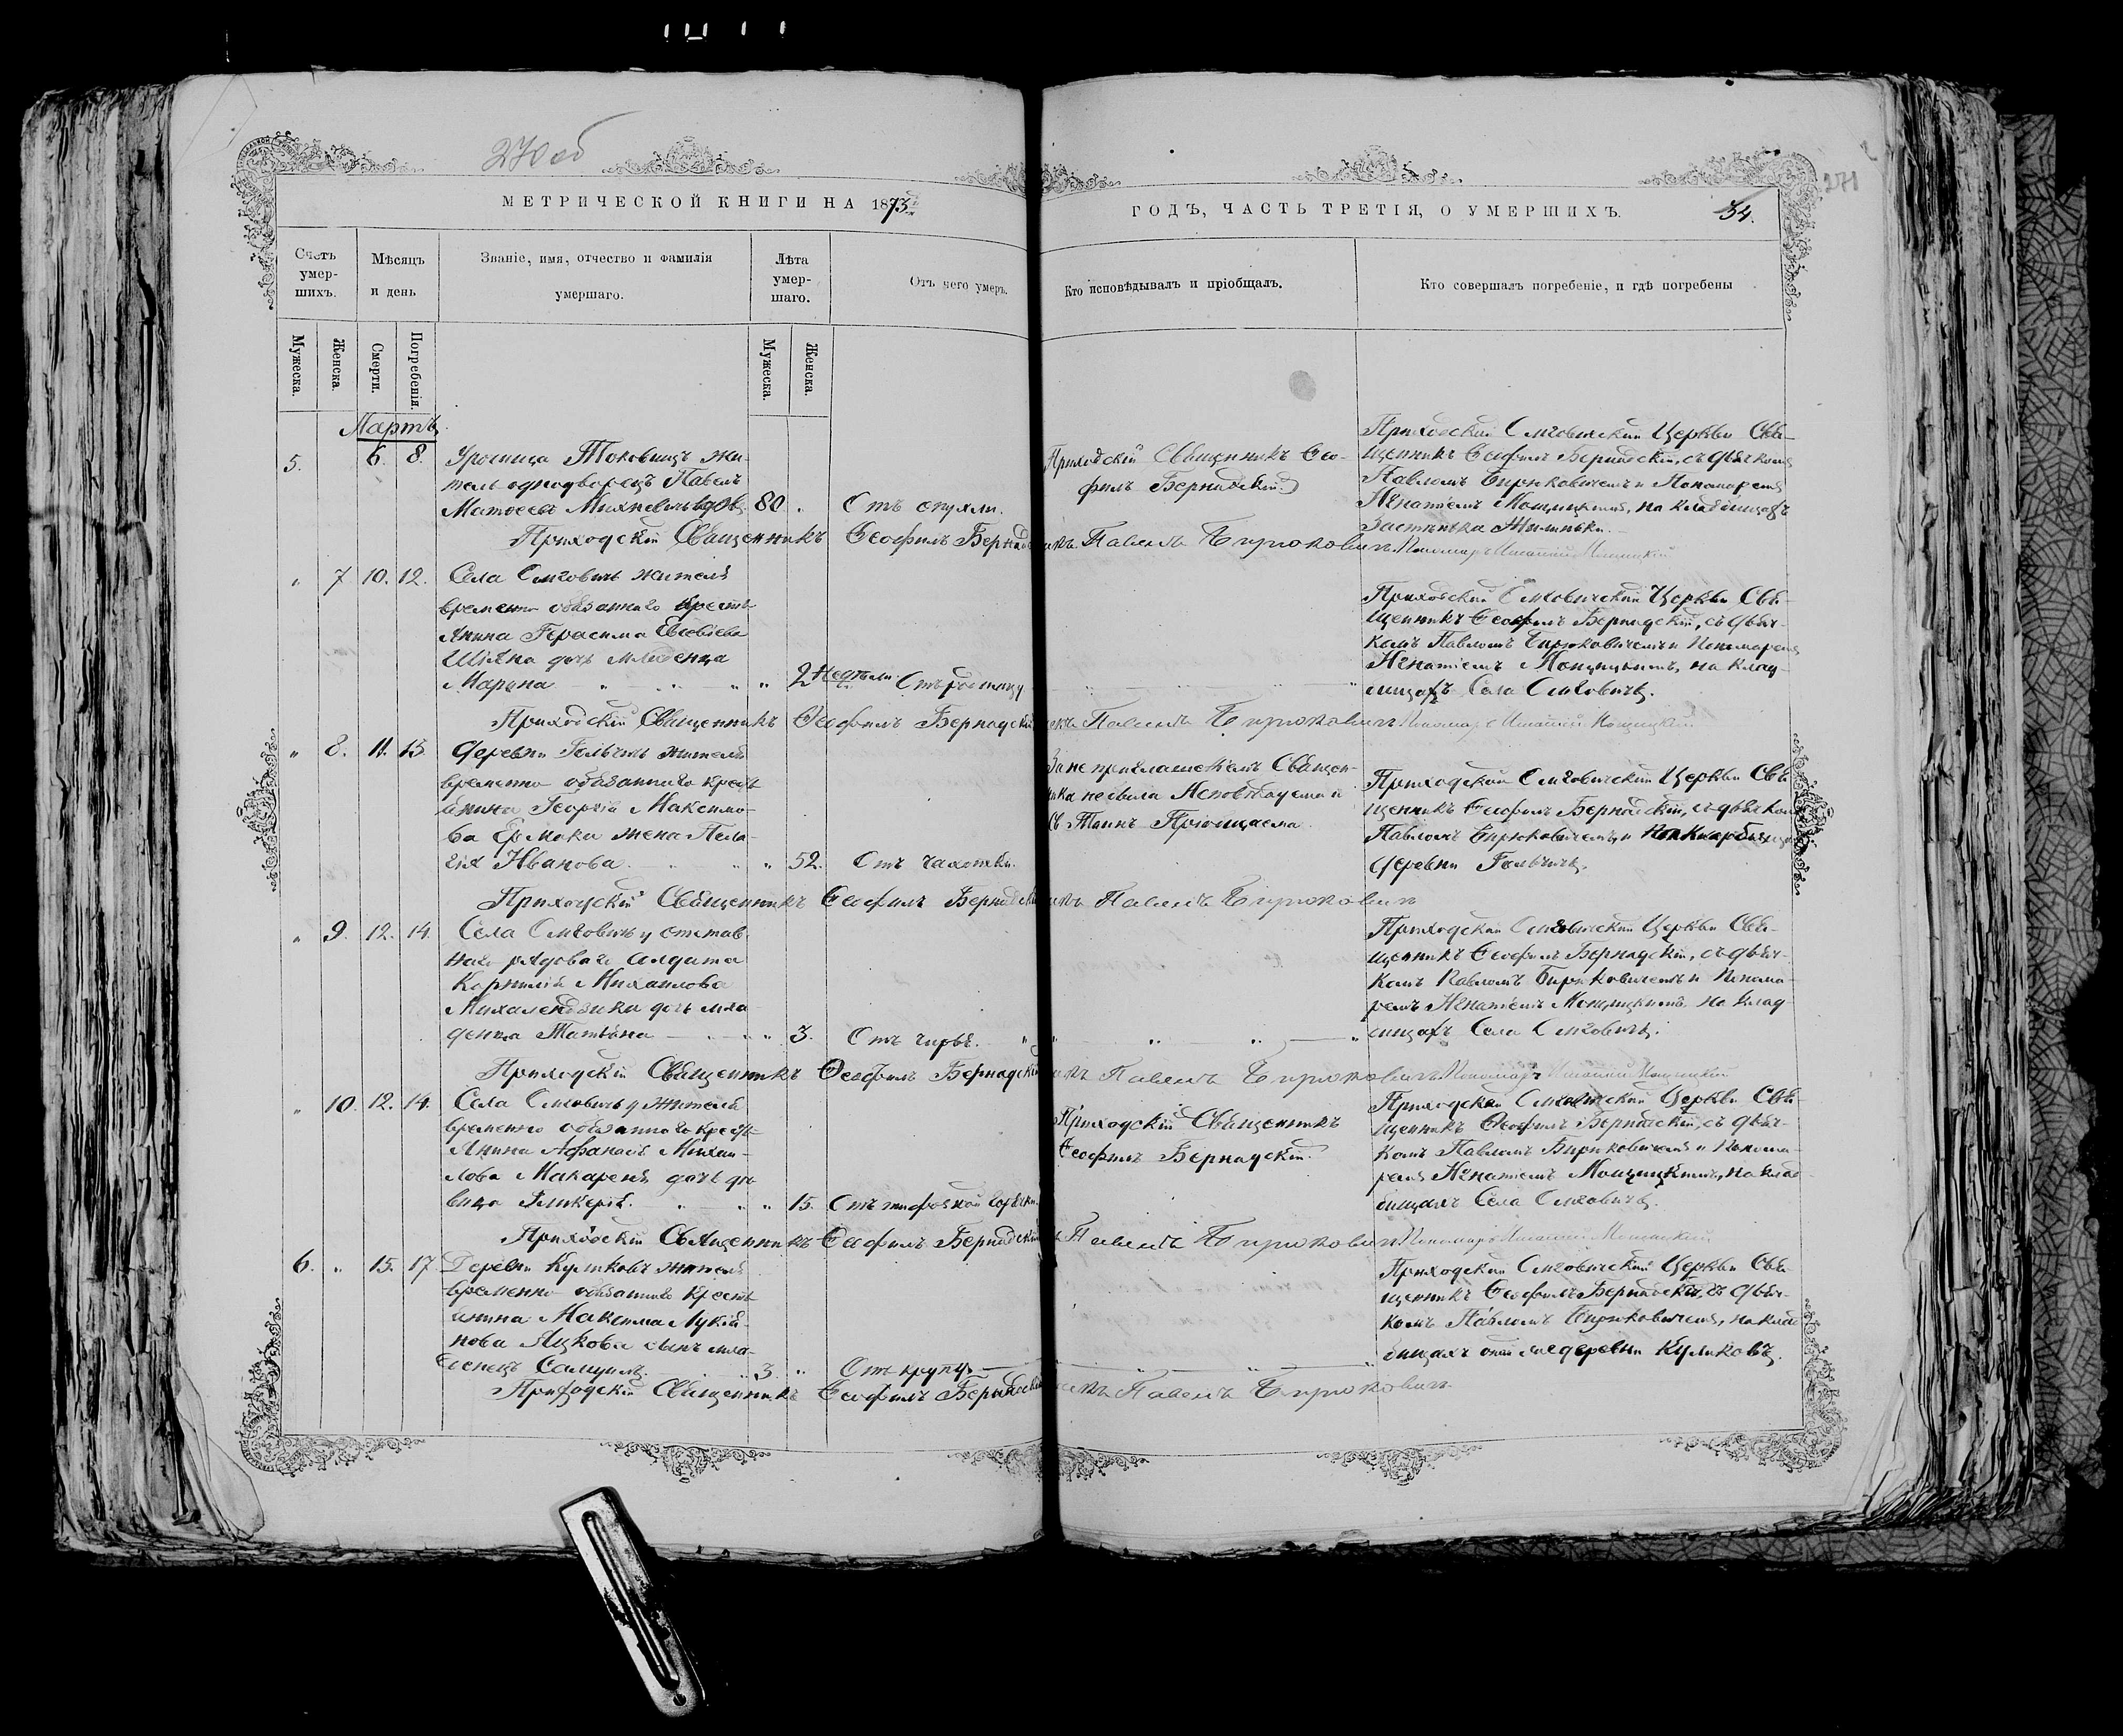 270 об
271
МЕТРИЧЕСКОЙ КНИГИ НА 1873
ГОДЪ, ЧАСТЬ ТРЕТІЯ, О УМЕРШИХЪ.
34.
Счетъ умер-шихъ.
Мѣсяцъ и день
Званіе, имя, отчество и фамилія умершаго.
Лѣта умер-шаго.
Отъ чего умеръ.
Кто исповѣдывалъ и пріобщалъ.
Кто совершалъ погребеніе, и гдѣ погребены
Мужеска.
Женска.
Смерти.
Погребенія.
Мужеска.
Женска.
Мартъ
5. 6. 8.
Урочища Токовищъ жи-
тель однодворецъ Павелъ
Матѳеевъ Михневичъ вдов. 80 Отъ опухли.
Приходскій Священникъ Ѳео-
филъ Бернадскій
Приходской Слиговичской Церкви Свя-
щенникъ Ѳеофилъ Бернадскій, съ дьячкомъ
Павломъ Бирюковичемъ и Пономаремъ
Игнатіемъ Мощицкимъ, на кладбищахъ
Застѣнка Жилиньки.
Приходскій Священникъ Ѳеофилъ Бернадскій
Павелъ Бирюковичъ Пономарь Игнатій Мощицкій
" 7 10. 12.
Села Слиговичъ жителя
временно обязаннаго крестъ-
янина Герасима
дочь младенца
Марина " " 2 Недѣли Отъ родимцу
Приходской Слиговичской Церкви Свя-
щенникъ Ѳеофилъ Бернадскій, съ дьяч-
комъ Павломъ Бирюковичемъ и Пономаремъ
Игнатіемъ Мощицкимъ, на клад-
бищахъ Села Слиговичъ.
Приходскій Священникъ Ѳеофилъ Бернадскій
Павелъ Бирюковичъ Пономарь Игнатій Мощицкій
" 8. 11. 13
Деревни жителя
временно обязаннаго крестъ-
янина Георгія Максимо-
ва Ермака жена Пела-
гія Иванова. " 52. Отъ чахотки.
За не приглашеніемъ Священ-
ника небыла Исповѣдуема и
Св. Таинъ Пріобщаема
Приходской Слиговичской Церкви Свя-
щенникъ Ѳеофилъ Бернадскій, съ дьячкомъ
Павломъ Бирюковичемъ
Деревни
Приходскій Священникъ Ѳеофилъ Бернадскій
Павелъ Бирюковичъ
" 9. 12. 14.
Села Слиговичъ у отстав-
наго рядоваго солдата
Корнилія Михаилова
дочь мла-
денца Татьяна " 3. Отъ чирья.
Приходской Слиговичской Церкви Свя-
щенникъ Ѳеофилъ Бернадскій, съ дьяч-
комъ Павломъ Бирюковичемъ и Понома-
ремъ Игнатіемъ Мощицкимъ, на клад-
бищахъ Села Слиговичъ.
Приходскій Священникъ Ѳеофилъ Бернадскій
Павелъ Бирюковичъ Пономарь Игнатій Мощицкій
" 10. 12. 14.
Села Слиговичъ у жителя
временно обязаннаго кресть-
янина Афанасія Михаи-
лова Макареня дочь дѣ-
вица Гликерія. " 15. Отъ тифозной горячки.
Приходскій Священникъ
Ѳеофилъ Бернадскій
Приходской Слиговичской Церкви Свя-
щенникъ Ѳеофилъ Бернадскій, съ дьяч-
комъ Павломъ Бирюковичемъ и Понома-
ремъ Игнатіемъ Мощицкимъ, на клад-
бищахъ Села Слиговичъ.
Приходскій Священникъ Ѳеофилъ Бернадскій
Павелъ Бирюковичъ Пономарь Игнатій Мощицкій
6. " 15. 17
Деревни Куликовъ жителя
временно обязаннаго кресть-
янина Максима Лукія-
нова Яцкова сынъ мла-
денецъ Самуилъ. 3. " Отъ крупу
Приходской Слиговичской Церкви Свя-
щенникъ Ѳеофилъ Бернадскій, съ дьяч-
комъ Павломъ Бирюковичемъ, на клад-
бищахъ оной же деревни Куликовъ.
Приходскій Священникъ Ѳеофилъ Бернадскій
Павелъ Бирюковичъ